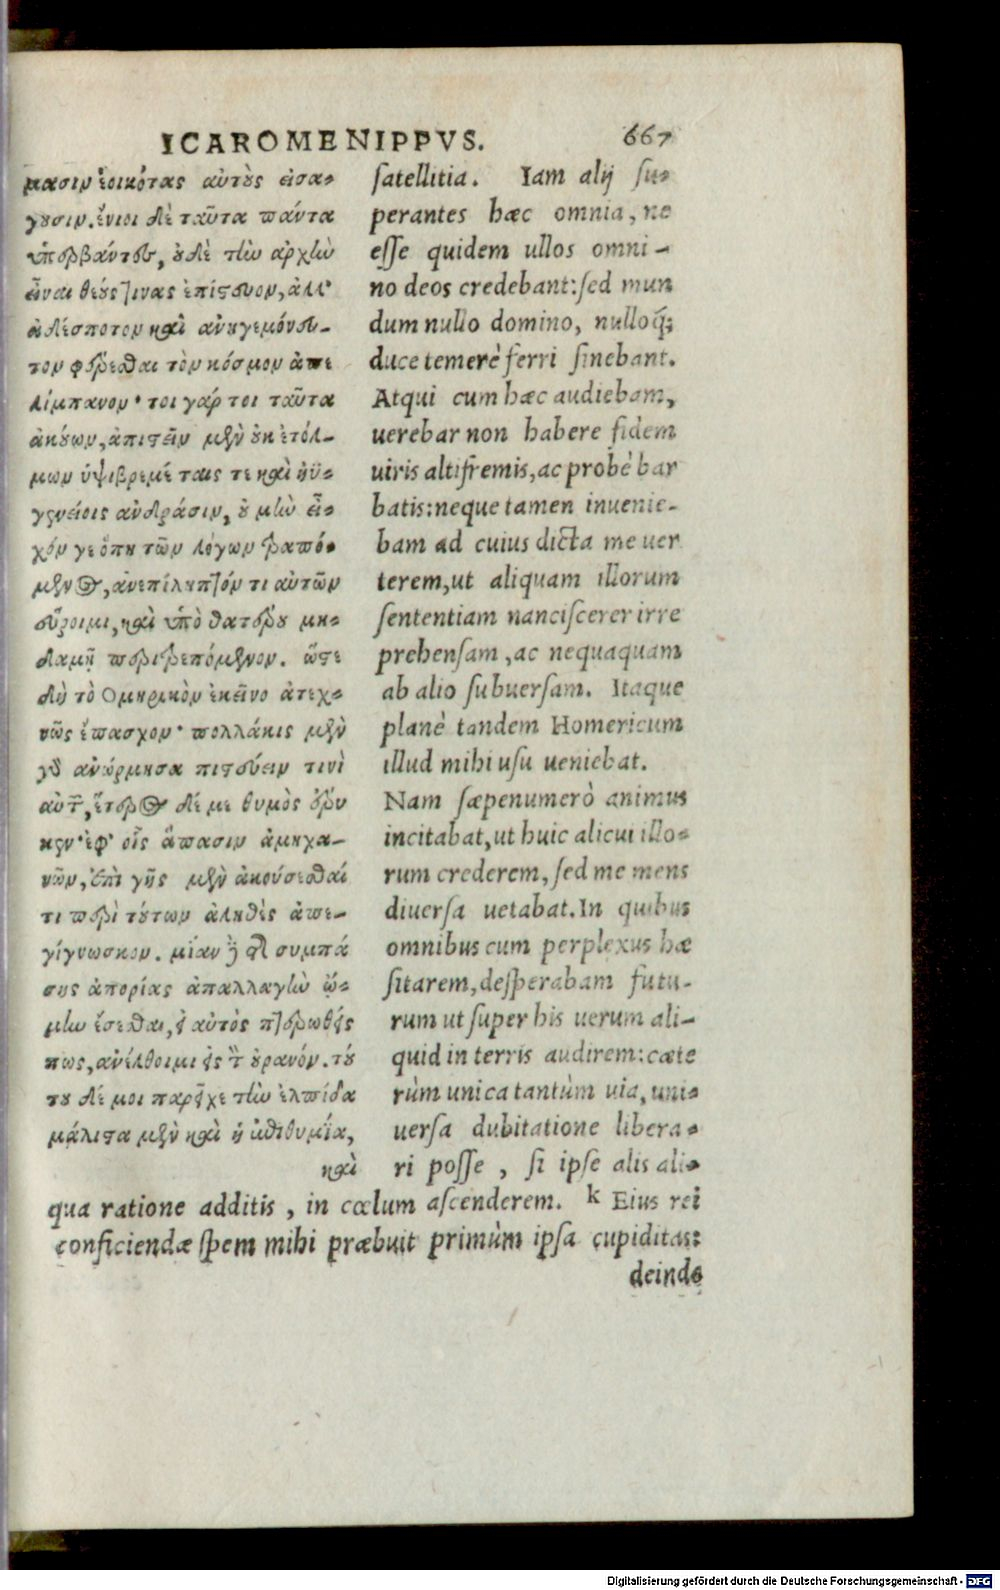 ICAROMENIPPVS. 667
μασιν ἐοικότας αὐτοὺς εἰσα-
γουσιν. ἔνιοι δὲ ταῦτα πάντα
ὑπερβάντες, οὐδὲ τὴν ἀρχὴν
εἶναι θεούς τινας ἐπίστευον, ἀλλ'
ἀδέσποτον καὶ ἀνηγεμόνευ-
τον φέρεσθαι τὸν κόσμον ἀπε
λίμπανον· τοι γάρ τοι ταῦτα
ἀκούων, ἀπιστεῖν μὲν οὐκ ἐτόλ-
μων ὑψιβρεμέταις τε καὶ ἠϋ-
γενείοις ἀνδράσιν, οὐ μὴν εἶ-
χόν γε ὅπη τῶν λόγων τραπό-
μενος, ἀνεπίληπτόν τι αὐτῶν
εὕροιμι, καὶ ὑπὸ θατέρου μη-
δαμῇ περιτρεπόμενον. ὥστε
δὴ τὸ Ὁμηρικὸν ἐκεῖνο ἀτεχ-
νῶς ἔπασχον· πολλάκις μὲν
γὰρ ἀνώρμησα πιστεύειν τινὶ
αὐτῶν, ἕτερος δέ με θυμὸς ἔρυ
κεν· ἐφ' οἷς ἅπασιν ἀμηχα-
νῶν, ἐπὶ γῆς μὲν ἀκούσεσθαί
τι περὶ τούτων ἀληθὲς ἀπε-
γίγνωσκον. μίαν δὲ τῆς συμπά
σης ἀπορίας ἀπαλλαγὴν ᾤ-
μην ἔσεσθαι, εἰ αὐτὸς πτερωθείς
πως, ἀνέλθοιμι εἰς τὸν οὐρανόν. τού
του δέ μοι παρεῖχε τὴν ἐλπίδα
μάλιστα μὲν καὶ ἡ ἐπιθυμία,
καὶ
satellitia. Iam alij su-
perantes hæc omnia, ne
esse quidem ullos omni-
no deos credebant: sed mun
dum nullo domino, nulloq́;
duce temerè ferri sinebant.
Atqui cum hæc audiebam,
uerebar non habere fidem
uiris altifremis, ac probè bar
batis: neque tamen inuenie-
bam ad cuius dicta me uer
terem, ut aliquam illorum
sententiam nanciscerer irre
prehensam, ac nequaquam
ab alio subuersam. Itaque
planè tandem Homericum
illud mihi usu ueniebat.
Nam sæpenumerò animus
incitabat, ut huic alicui illo-
rum crederem, sed me mens
diuersa uetabat. In quibus
omnibus cum perplexus hæ
sitarem, desperabam futu-
rum ut super his uerum ali-
quid in terris audirem: cæte
rùm unica tantùm uia, uni-
uersa dubitatione libera-
ri posse, si ipse alis ali-
qua ratione additis, in cœlum ascenderem. k Eius rei
conficiendæ spem mihi præbuit primùm ipsa cupiditas:
deinde
Digitalisierung gefördert durch die Deutsche Forschungsgemeinschaft - DFG